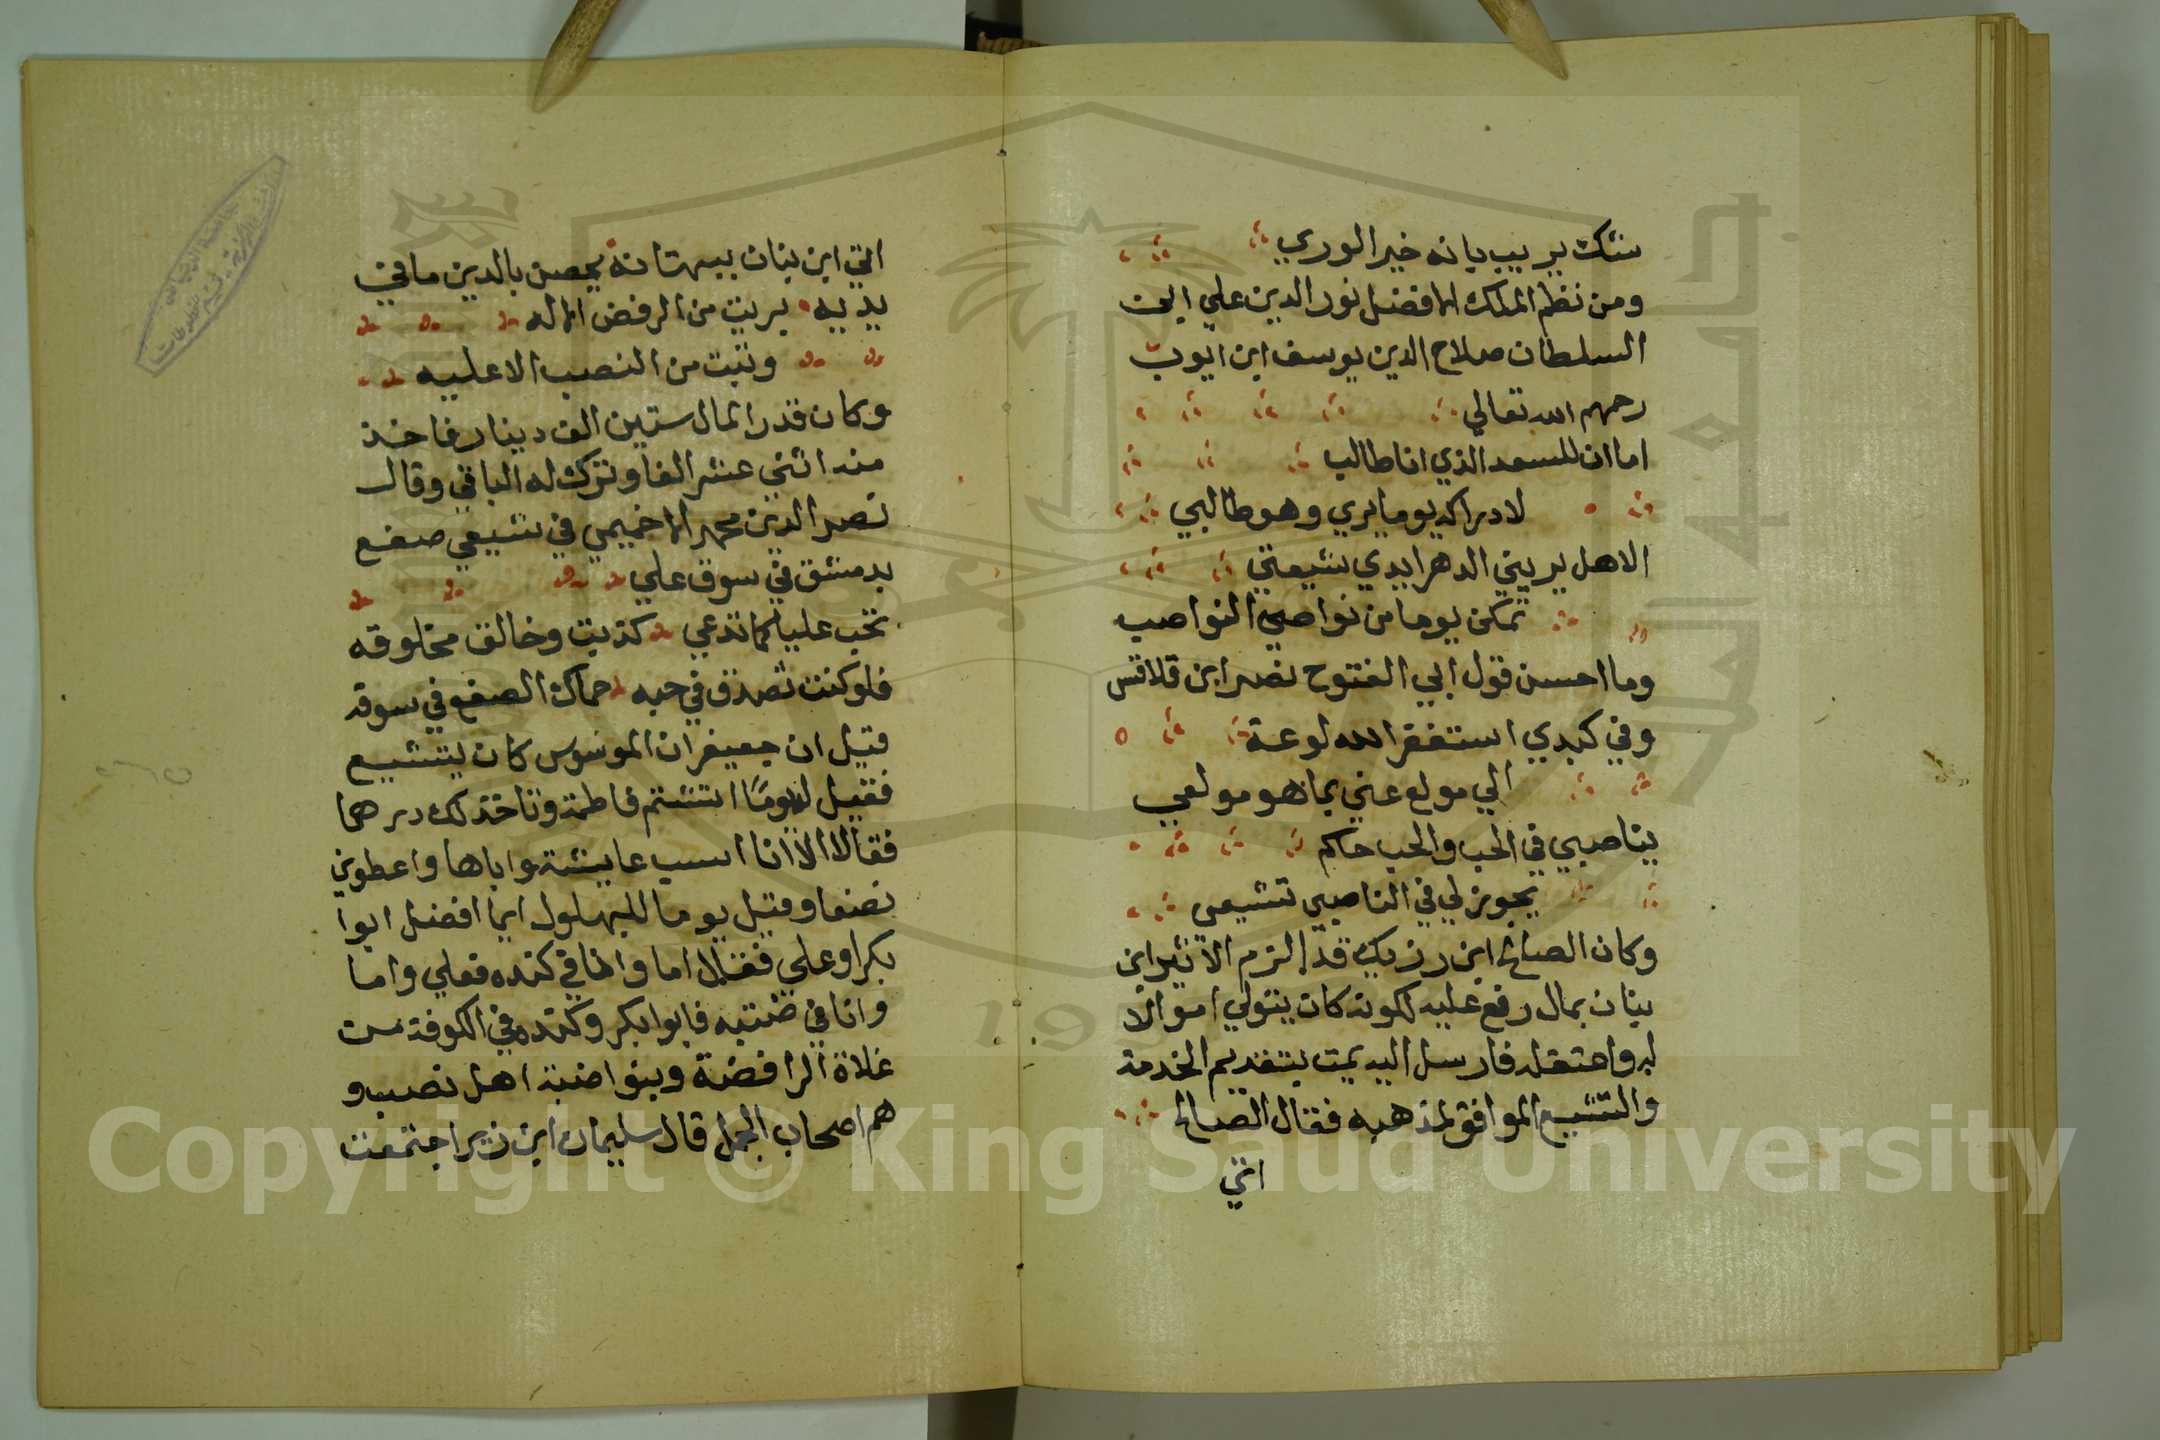 شك يريب بانه خير الوري
ومن نظم الملك الافضل نور الدين علي ابن
السلطان صلاح الدين يوسف ابن ايوب
رحمهم الله تعالي
اما ان للسعد الذي انا طالب
لادراكه يوما يري وهو طالبي
الاهل يريني الدهر ايدي شيعتي
تمكن يوما من نواصي النواصب
وما احسن قول ابي الفتوح نصر ابن قلاقس
وفي كبدي استغفر الله لوعة
الي مولع عني بما هو مولعي
يناصبي في الحب والحب حاكم
يجوز لي في الناصبي تشيعي
وكان الصالح ابن رزيك قد الزم الاثير ابن
بنان بمال رفع عليه لكونه كان يتولي اموالا
له واعتقله فارسل اليه يمت بتقديم الخدمة
والتشيع الموافق لمذهبه فقال الصالح
اتي
اتي ابن بنان ببهتانه يحصن بالدين ما في
يديه بريت من الرفض الا له
وتبت من النصب الا عليه
وكان قدر المال ستين الف دينار فاخذ
منه اثني عشر الفا وترك له الباقي وقال
نصر الدين محمد الاخميمي في شيعي صفع
بدمشق في سوق علي
تحب عليا كما تدعي كذبت وخالق مخلوقه
فلو كنت تصدق في حبه حماك الصفع في سوقه
قيل ان جعيفران الموسوس كان يتشيع
فقيل له يوما اتشتم فاطمة وتاخذ لك درهما
فقال لا الا انا اسب عايشة واباها واعطوني
نصفا وقيل يوما للبهلول ايما افضل ابوا
بكر او علي فقال اما وانا في كنده فعلي واما
وانا في ضبته فابوا بكر وكنده في الكوفة من
غلاة الرافضة وبنوا ضبة اهل نصب و
هم اصحاب الجمل قال سليمان ابن زير اجتمعت
Copyright © King Saud University